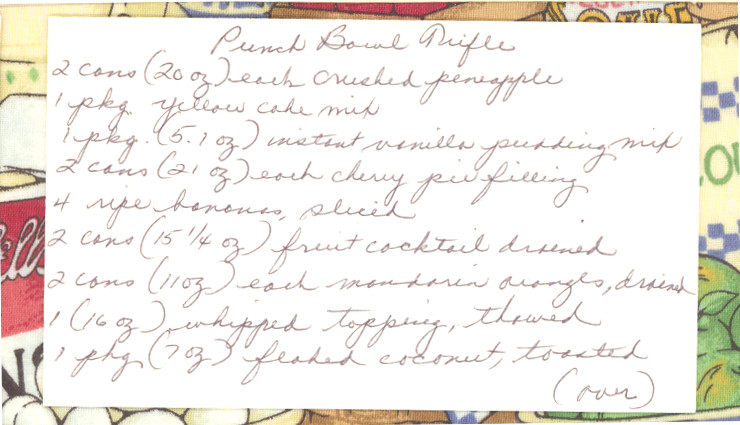 Punch Bowl Trifle
2 cans (20 oz) each crushed peneapple
1 pkg. yellow cake mix
1 pkg. (5.1 oz) instant vanilla pudding mix
2 cans (21 oz) each cherry pie filling
4 ripe bananas, sliced
2 cans (15 1/4 oz) fruit cocktail drained
2 cans (11 oz) each mandarin oranges, drained
1 (16 oz) whipped topping, thawed
1 pkg (7 oz) flaked coconut, toasted
(over)